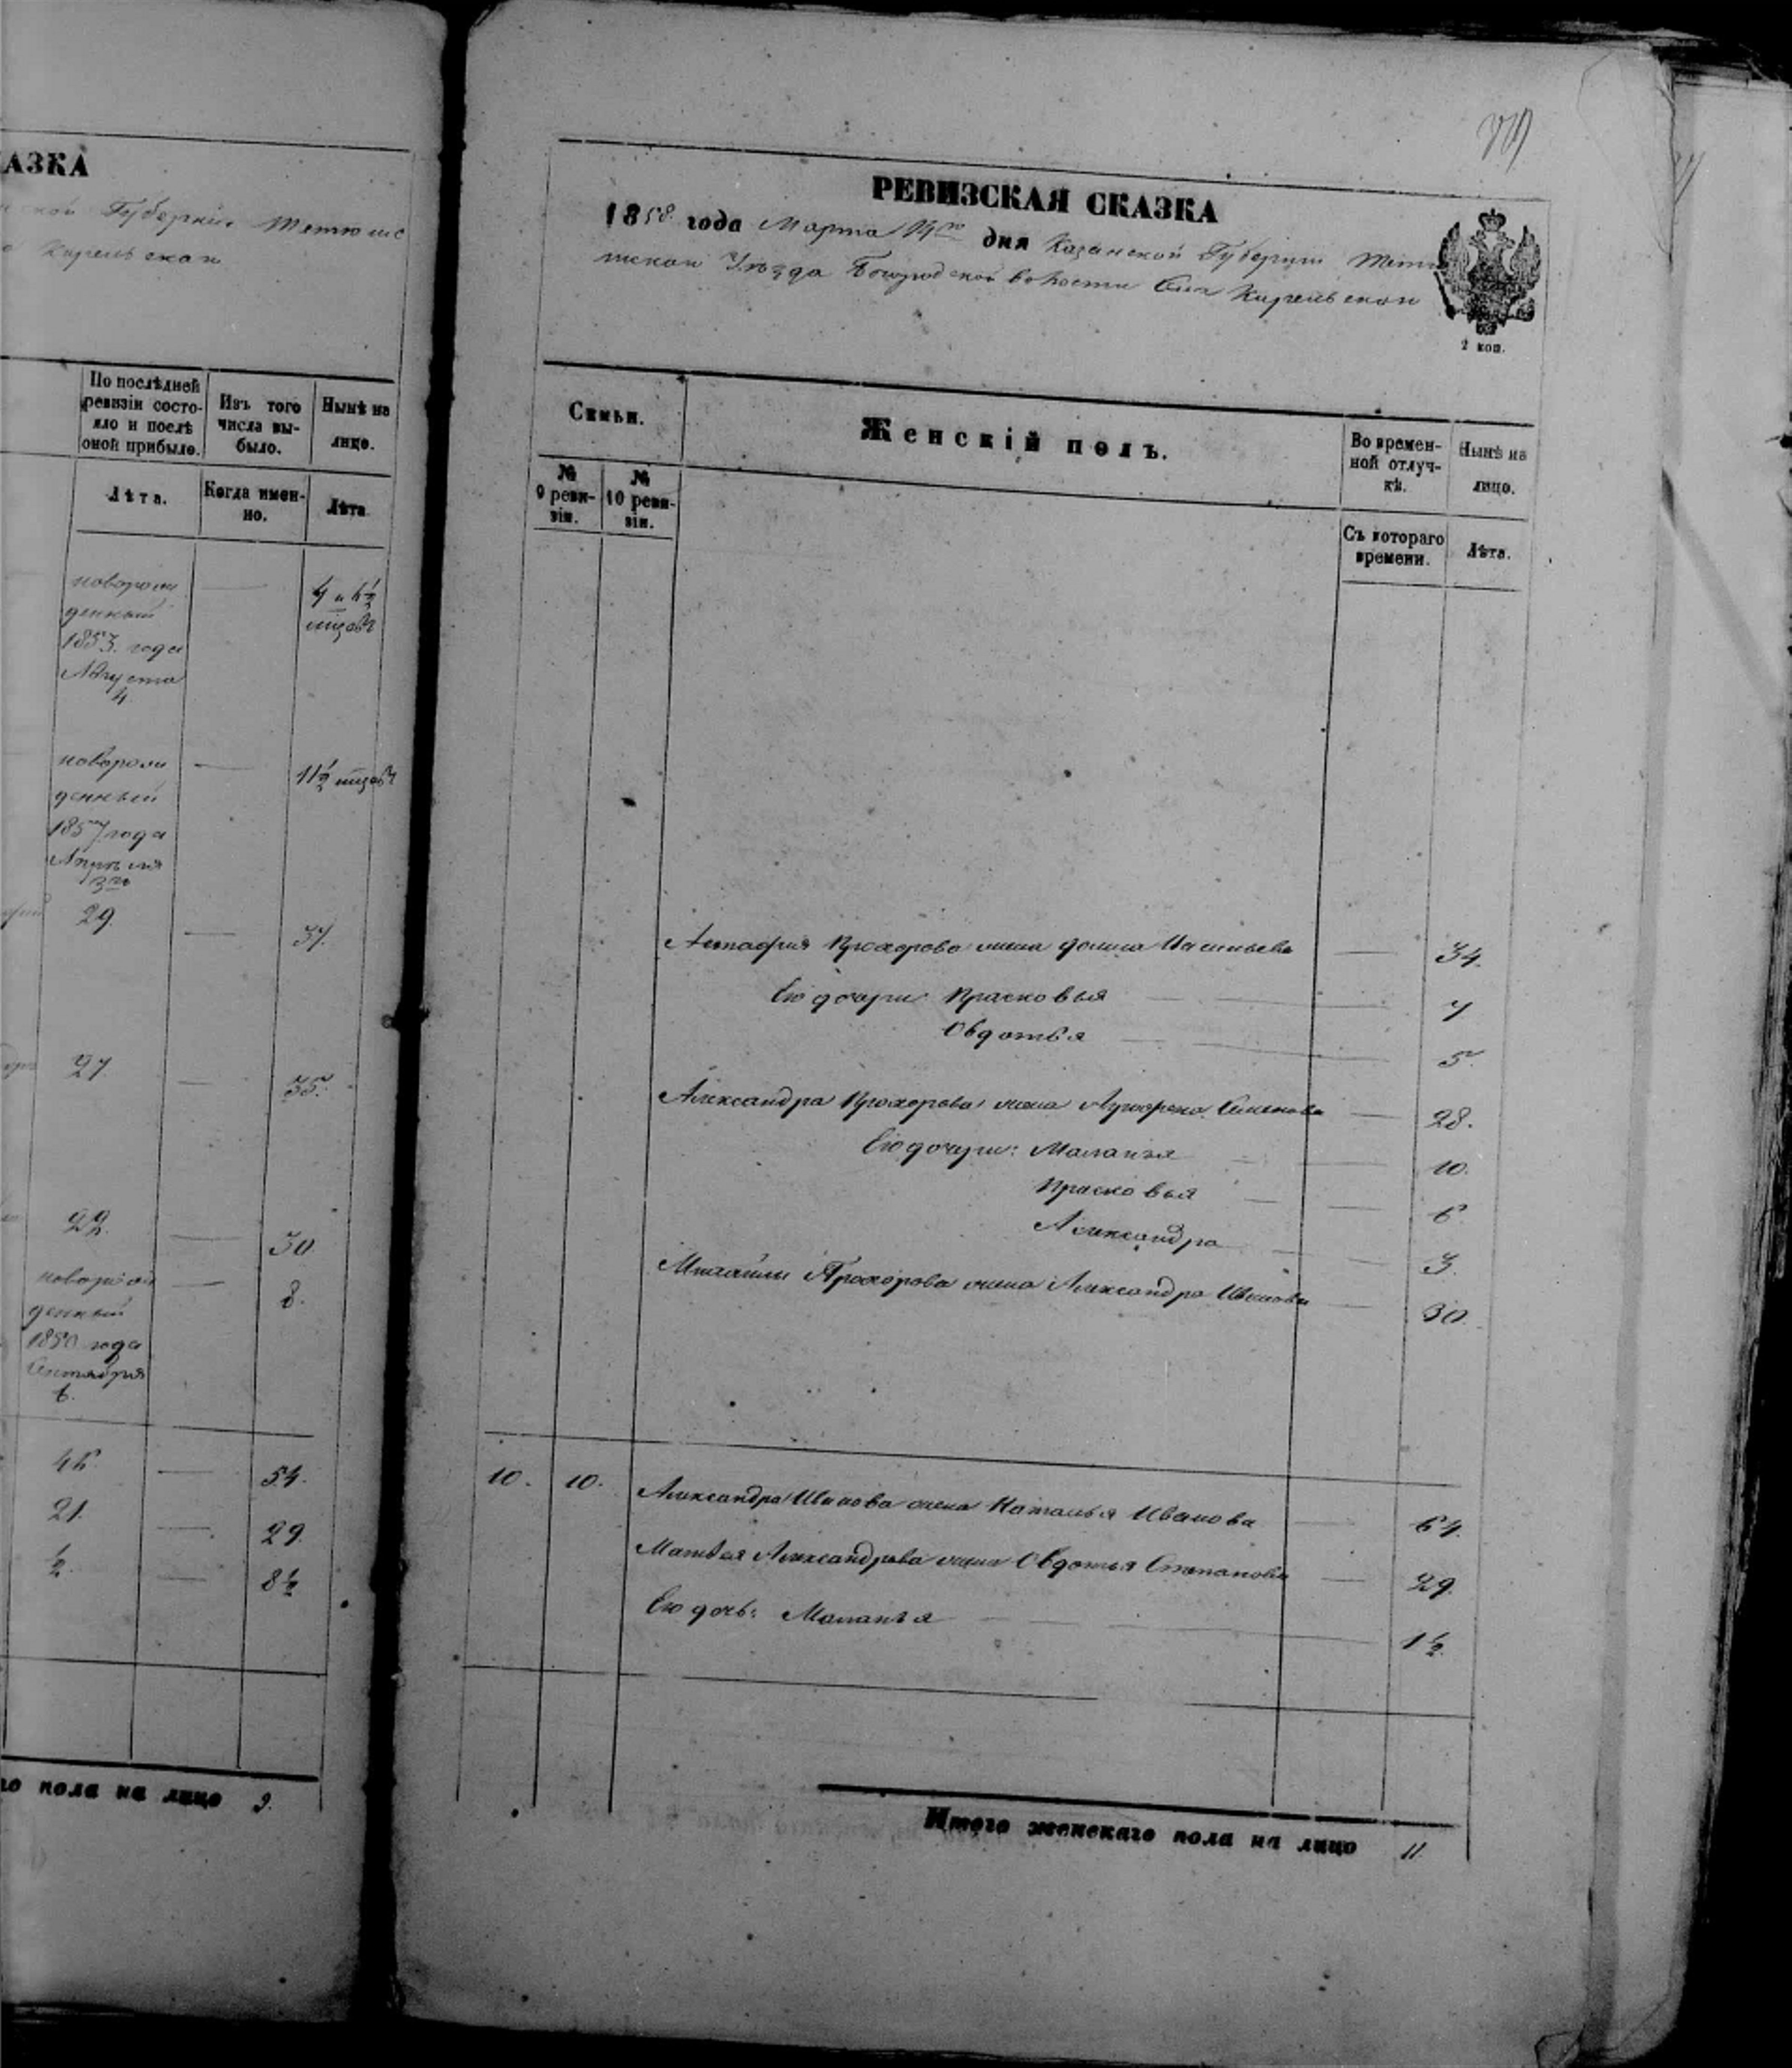 АЗКА
ской Губерніи Тетюшс
Кирельскаи
По послѣдней
ревизіи состо-
яло и послѣ
оной прибыло.
Изъ того
числа вы-
было.
Нынѣ на
лицо.
Лѣта.
Когда имен-
но.
Лѣта
новорож
денный
1853. года
Августа
4
4 и 6½
мцовъ
новорож
денный
1857 года
Апрѣля
11½ мцовъ
29.
37.
27.
35.
22.
30.
новорож
денный
1850 года
Сентября
8.
46.
54.
21.
29.
½.
8½
го пола на лицо 9.
РЕВИЗСКАЯ СКАЗКА
1858. года Марта дня Казанской Губерніи Тетю
шскаи Уѣзда Богородской волости Села Кирельскаи
2 коп.
Семьи.
Женскій полъ.
Во времен-
ной отлуч-
кѣ.
Нынѣ на
лицо.
№
9 реви-
зіи.
№
10 реви-
зіи.
Съ котораго
времени.
Лѣта.
Прохорова жена 34.
Его дочери Прасковья 7
Овдотья 5.
Александра Прохорова жена Семенова 28.
Его дочери: Маланья 10.
Прасковья 6.
Александра 3.
Михайлы Прохорова жена Александра Иванова 30.
10. 10. Александра Иванова жена Наталья Иванова 64.
Матвея Александрова жена Овдотья Степанова 29.
Его дочь: Маланья 1½.
Итого женскаго пола на лицо 11.